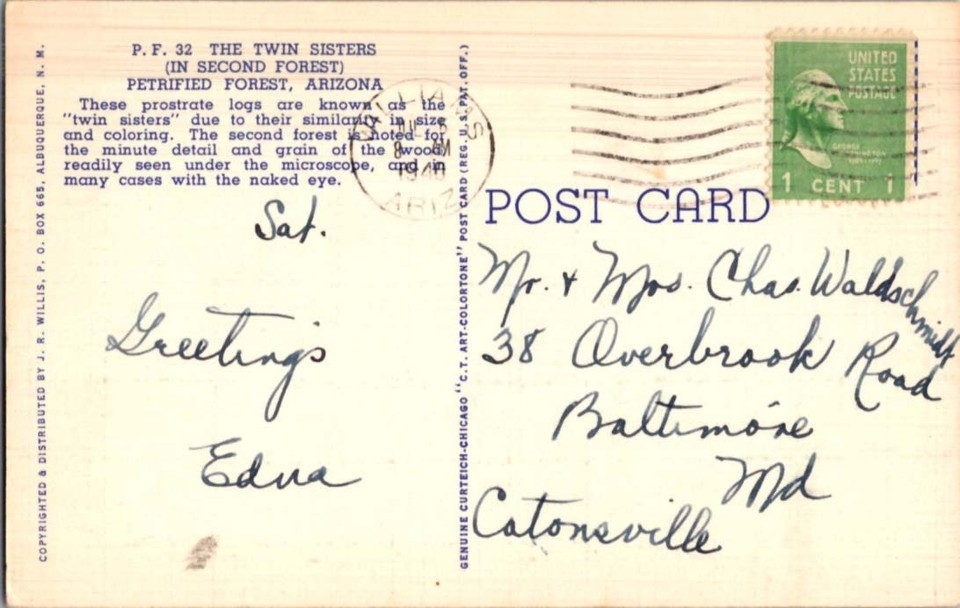 P. F. 32 THE TWIN SISTERS
(IN SECOND FOREST)
PETRIFIED FOREST, ARIZONA
These prostrate logs are known as the
"twin sisters" due to their similarity in size
and coloring. The second forest is noted for
the minute detail and grain of the wood,
readily seen under the microscope, and in
many cases with the naked eye.
Sat.
Greetings
Edna
COPYRIGHTED & DISTRIBUTED BY J. R. WILLIS, P. O. BOX 665, ALBUQUERQUE, N. M.
GENUINE CURTEICH-CHICAGO "C.T. ART-COLORTONE" POST CARD (REG. U.S. PAT. OFF.)
WILLIAMS
1940
ARIZ
UNITED
STATES
POSTAGE
GEORGE
WASHINGTON
1 CENT 1
POST CARD
Mr. & Mrs. Chas. Waldschmidt
38 Overbrook Road
Baltimore
Md
Catonsville